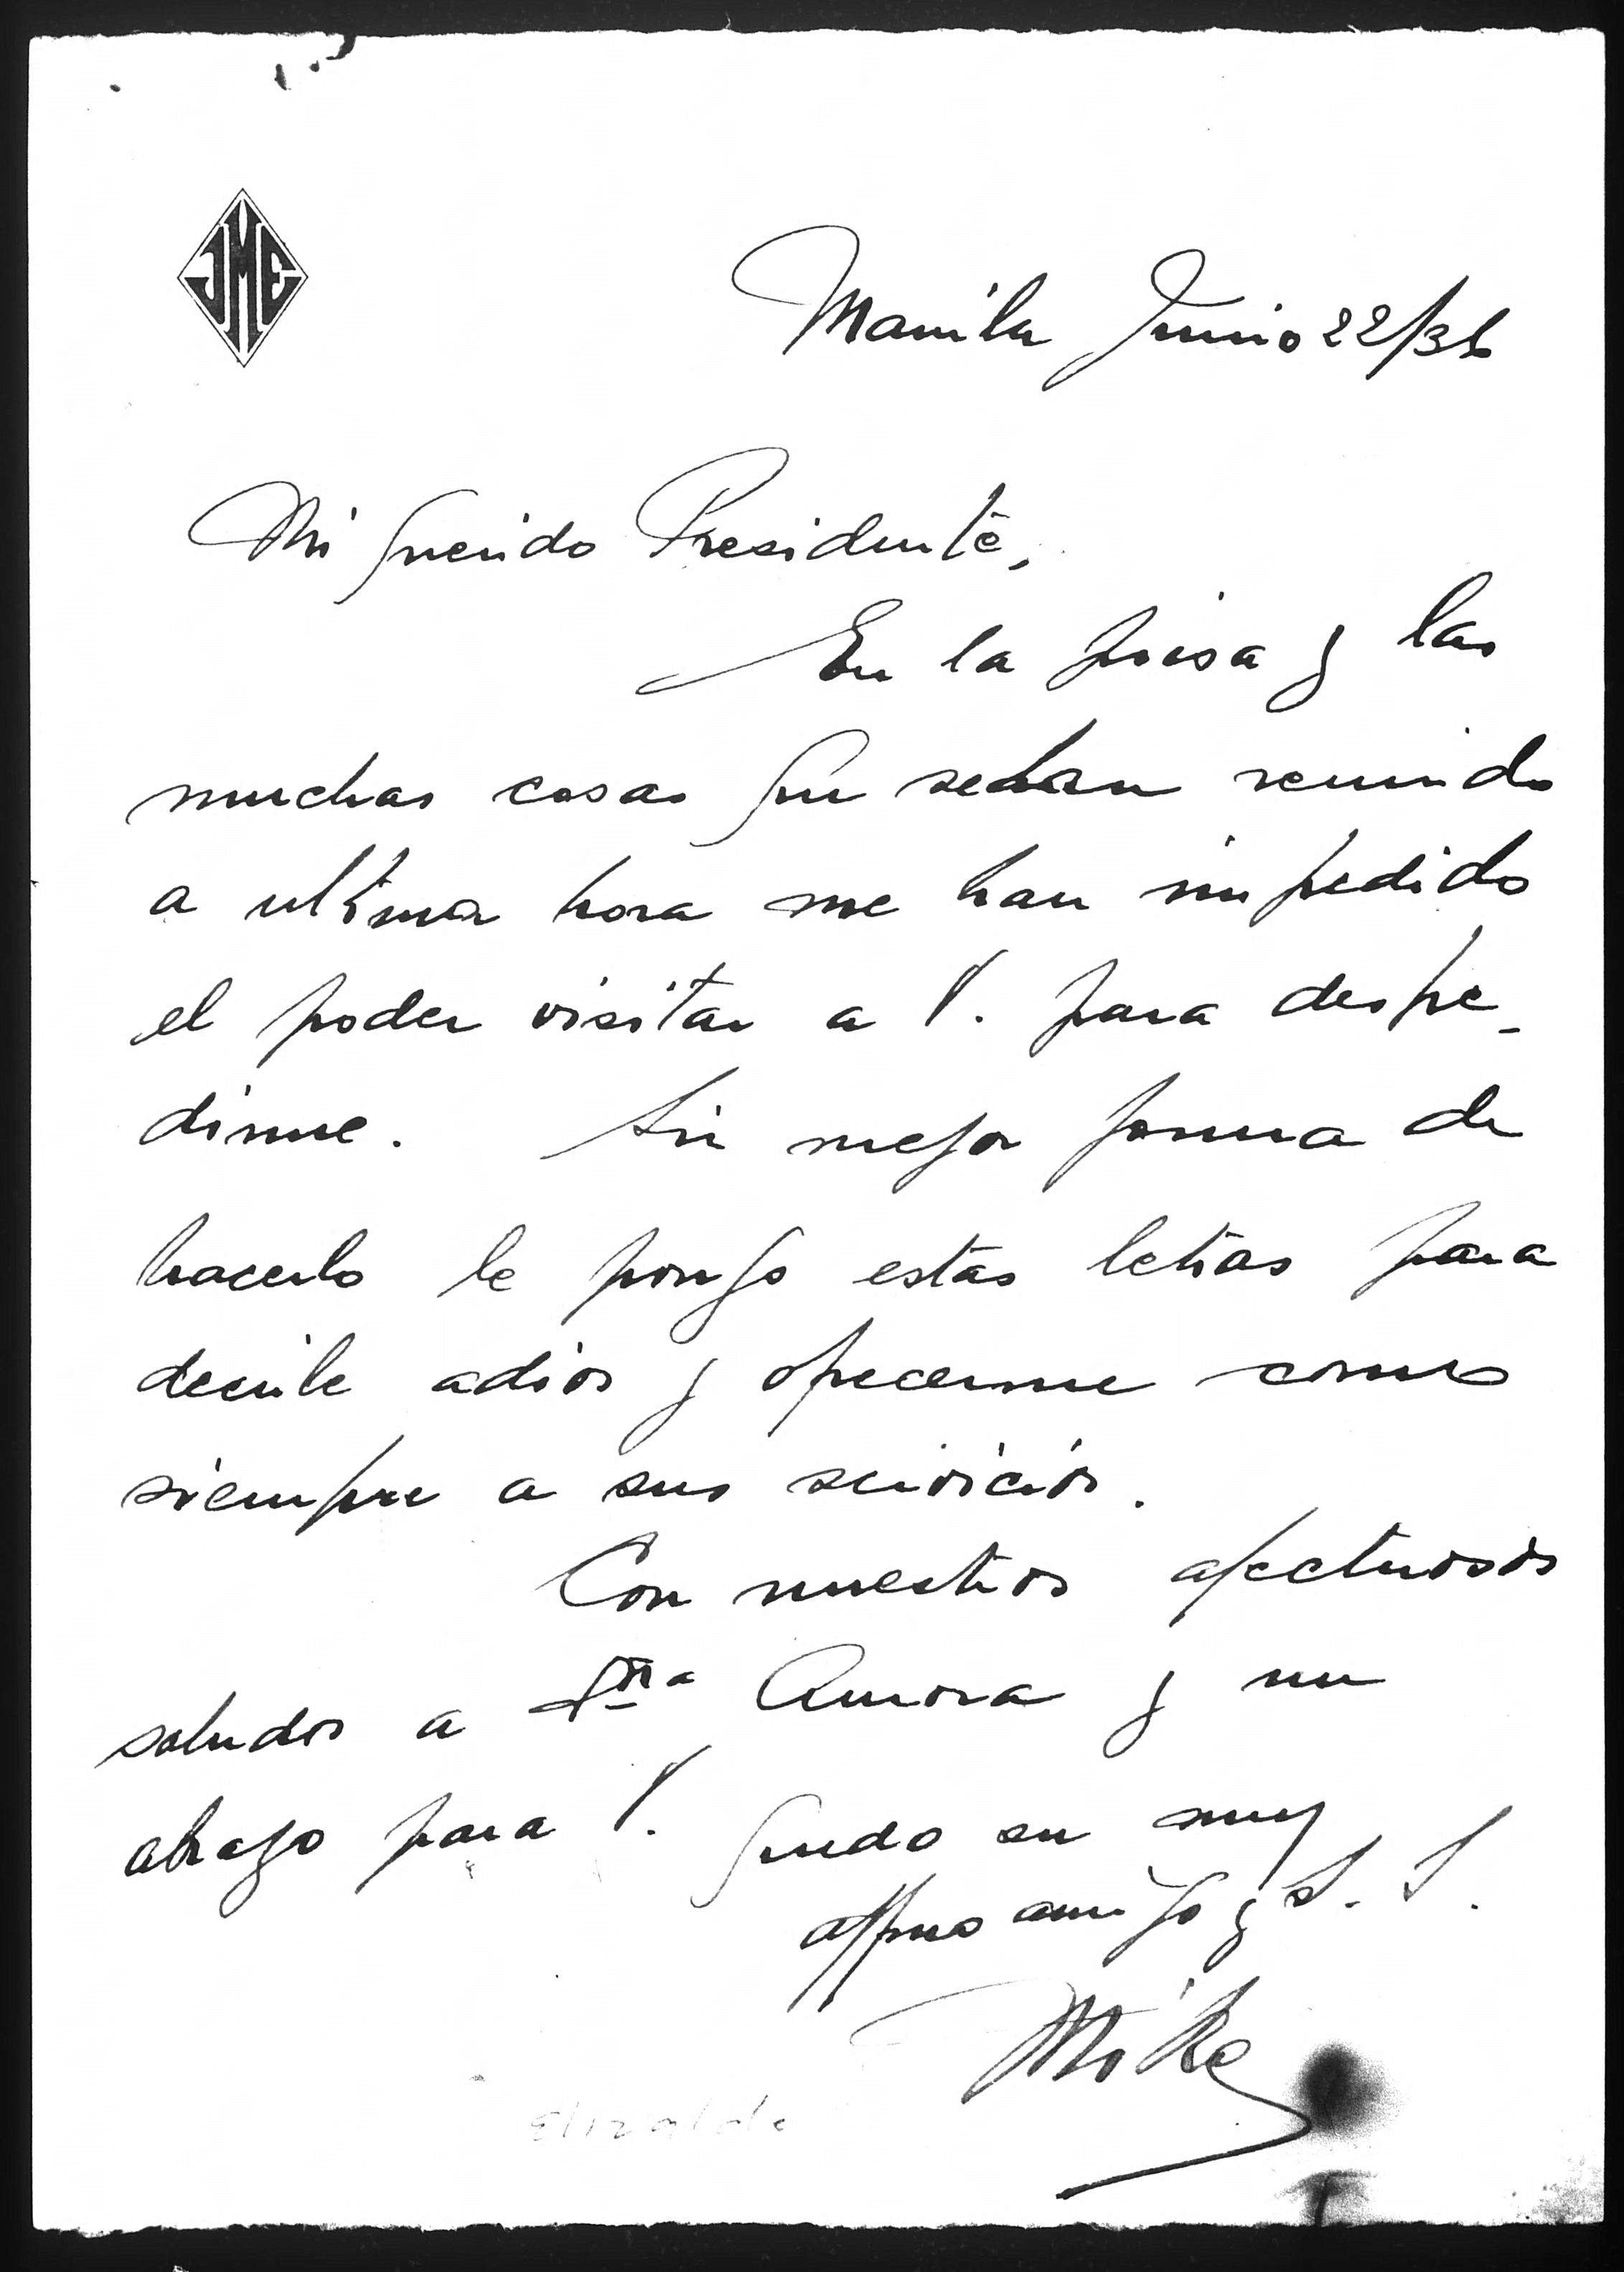 JME
Manila Junio 22/36
Mi querido Presidente,
En la prisa y las
muchas cosas que se han reunido
a ultima hora me han impedido
el poder visitar a V. para despe-
dirme. Sin mejor forma de
hacerlo le pongo estas letras para
decirle adios y ofrecerme como
siempre a sus servicios.
Con nuestros afectuosos
saludos a Dña Aurora y un
abrazo para V. quedo su muy
affmo amigo y S. S.
Mike
Elizalde